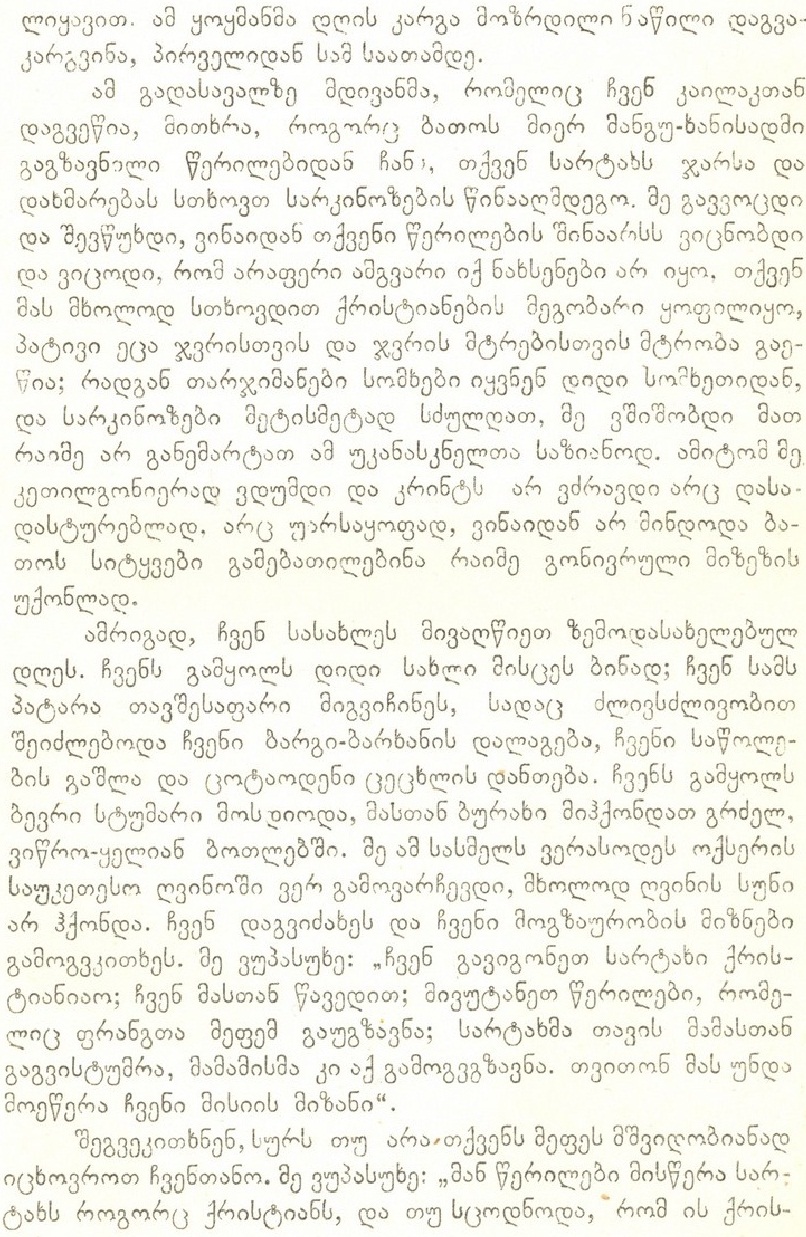 ლიყავით. ამ ყოყმანმა დღის კარგა მოზრდილი ნაწილი დაგვა-
კარგვინა, პირველიდან სამ საათამდე.
ამ გადასავალზე მდივანმა, რომელიც ჩვენ კაილაკთან
დაგვეწია, მითხრა, როგორც ბათოს მიერ მანგუ-ხანისადმი
გაგზავნილი წერილებიდან ჩანს, თქვენ სარტახს ჯარსა და
დახმარებას სთხოვთ სარკინოზების წინააღმდეგო. მე გავვოცდი
და შევწუხდი, ვინაიდან თქვენი წერილების შინაარსს ვიცნობდი
და ვიცოდი, რომ არაფერი ამგვარი იქ ნახსენები არ იყო. თქვენ
მას მხოლოდ სთხოვდით ქრისტიანების მეგობარი ყოფილიყო,
პატივი ეცა ჯვრისთვის და ჯვრის მტრებისთვის მტრობა გაე-
წია; რადგან თარჯიმანები სომხები იყვნენ დიდი სომხეთიდან,
და სარკინოზები მეტისმეტად სძულდათ, მე ვშიშობდი მათ
რაიმე არ განემარტათ ამ უკანასკნელთა საზიანოდ. ამიტომ მე
კეთილგონიერად ვდუმდი და კრინტს არ ვძრავდი არც დასა-
დასტურებლად. არც უარსაყოფად, ვინაიდან არ მინდოდა ბა-
თოს სიტყვები გამებათილებინა რაიმე გონივრული მიზეზის
უქონლად.
ამრიგად, ჩვენ სასახლეს მივაღწიეთ ზემოდასახელებულ
დღეს. ჩვენს გამყოლს დიდი სახლი მისცეს ბინად; ჩვენ სამს
პატარა თავშესაფარი მიგვიჩინეს, სადაც ძლივსძლივობით
შეიძლებოდა ჩვენი ბარგი-ბარხანის დალაგება, ჩვენი საწოლე-
ბის გაშლა და ცოტაოდენი ცეცხლის დანთება. ჩვენს გამყოლს
ბევრი სტუმარი მოსდიოდა, მასთან ბურახი მიჰქონდათ გრძელ,
ვიწრო-ყელიან ბოთლებში. მე ამ სასმელს ვერასოდეს ოქსერის
საუკეთესო ღვინოში ვერ გამოვარჩევდი, მხოლოდ ღვინის სუნი
არ ჰქონდა. ჩვენ დაგვიძახეს და ჩვენი მოგზაურობის მიზნები
გამოგვკითხეს. მე ვუპასუხე: „ჩვენ გავიგონეთ სარტახი ქრის-
ტიანიაო; ჩვენ მასთან წავედით; მივუტანეთ წერილები, რომე-
ლიც ფრანგთა მეფემ გაუგზავნა; სარტახმა თავის მამასთან
გაგვისტუმრა, მამამისმა კი აქ გამოგვგზავნა. თვითონ მას უნდა
მოეწერა ჩვენი მისიის მიზანი“.
შეგვეკითხნენ, სურს თუ არა თქვენს მეფეს მშვიდობიანად
იცხოვროთ ჩვენთანო. მე ვუპასუხე: „მან წერილები მისწერა სარ-
ტახს როგორც ქრისტიანს, და თუ სცოდნოდა, რომ ის ქრის-